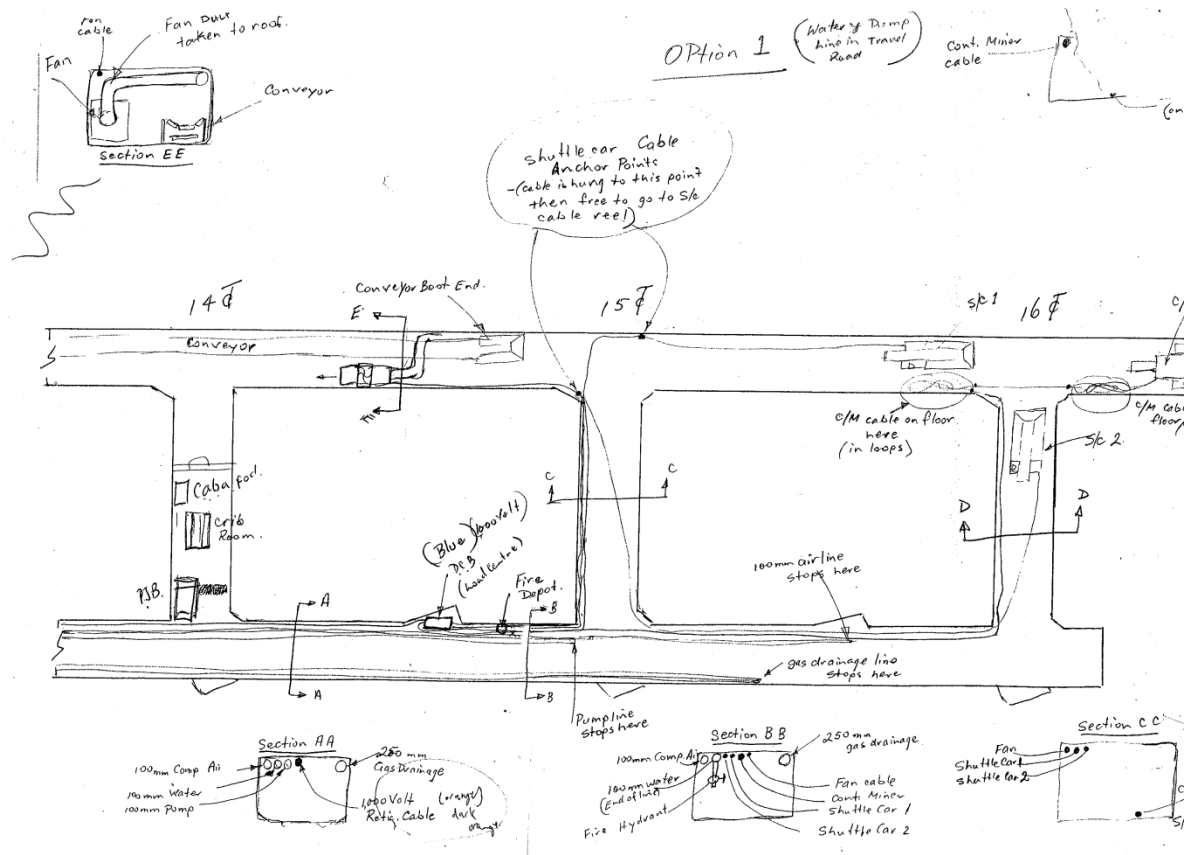 Fan
cable
Fan Duct
taken to roof.
Fan
Conveyor
Section EE
OPtion 1
(Water & Pump
Line in Travel
Road)
Cont. Miner
cable
Shuttle car Cable
Anchor Points
-(cable is hung to this point
then free to go to S/c
cable reel)
14 ₵
Conveyor Boot End.
15 ₵
S/c 1
16 ₵
E
Conveyor
C/M cable on floor
here
(in loops)
C/M cab
floor
S/c 2
E
C
C
D
D
Crib
Room.
(Blue) (1000 Volt)
D.C.B
(Load Centre)
Fire
Depot.
100mm airline
stops here
PJB.
A
B
A
B
gas drainage line
stops here
Pump line
stops here
Section AA
100mm Comp Air
100mm Water
100mm Pump
250 mm
Gas Drainage
1,000 Volt (orange)
Retic. Cable dark
orange
Section BB
100mm Comp Air
100mm Water
(End of line)
Fire Hydrant
250 mm
gas drainage
Fan cable
Cont. Miner
Shuttle Car 1
Shuttle Car 2
Section CC
Fan
Shuttle Car 1
Shuttle car 2